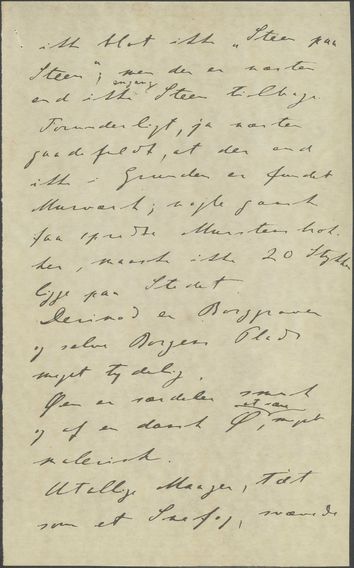 ikke blot ikke „Steen paa
Steen“, men der er næsten
end ikke engang Steen tilbage.
Forunderligt, ja næsten
gaadefuldt, at der end
ikke i Grunden er fundet
Murværk; nogle ganske
faa spredte Murstensbrok-
ker, maaske ikke 20 Stykker
ligge paa Stedet.
Derimod er Borggraven
og selve Borgens Plads
meget tydelig.
Øen er særdeles smuk
og af en dansk Ø, et saa meget
malerisk.
Utallige Maager, tæt
som et Snefog, svævede